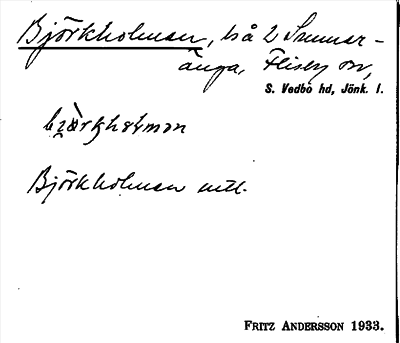 Björkholmen, ts å 2 Sunnar-
änga, Flisby sn,
S. Vedbo hd, Jönk. l.
Björkholmen uttl.
FRITZ ANDERSSON 1933.